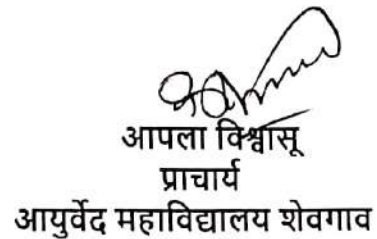 आपला विश्वासू
प्राचार्य
आयुर्वेद महाविद्यालय शेवगाव